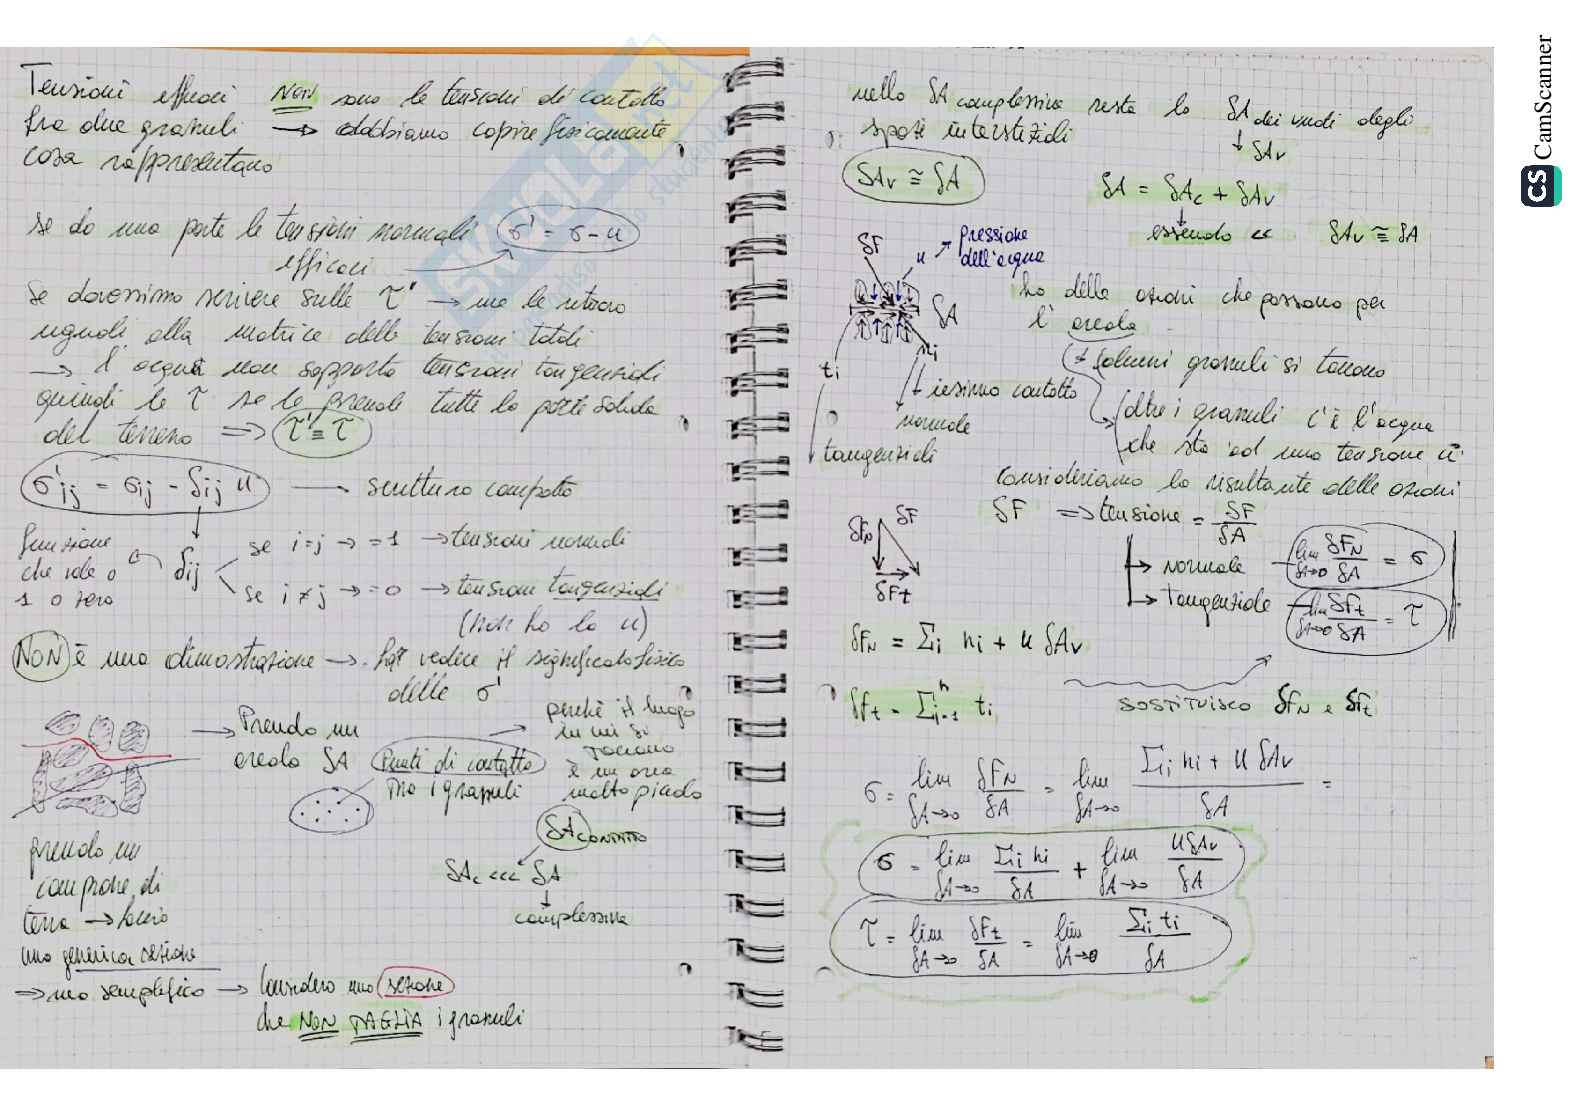 Tensioni efficaci NON sono le tensioni di contatto
fra due granuli → dobbiamo capire fisicamente
cosa rappresentano
se da una parte le tensioni normali σ' = σ - u
efficaci
se dovessimo scrivere sulle τ' → me le ritrovo
uguali alla matrice delle tensioni totali
→ l'acqua non sopporta tensioni tangenziali
quindi le τ se le prende tutte la parte solida
del terreno => τ' ≡ τ
σ'ij = σij - δij u — scrittura compatta
funzione
che vale o
1 o zero
δij
se i=j → =1 → tensioni normali
se i≠j → =0 → tensioni tangenziali
(non ho la u)
NON è una dimostrazione → far vedere il significato fisico
delle σ'
→ Prendo un
areola δA
Punti di contatto
tra i granuli
perché il luogo
in cui si
toccano
è un area
molto piccola
δA CONTATTO
δAc <<< δA
complessiva
prendo un
campione di
terra → faccio
una generica sezione
=> ma semplifico → Considero una sezione
che NON TAGLIA i granuli
nello δA complessiva resta la δA dei vuoti degli
spazi interstiziali
↓ δAv
δAv ≅ δA
δA = δAc + δAv
essendo << δAv ≅ δA
δF u → pressione
dell'acqua
δA
ho delle azioni che passano per
l'areola
ti
ni
→ alcuni granuli si toccano
↳ iesimo contatto
normale
tangenziali
oltre i granuli c'è l'acqua
che sta ad una tensione u
Consideriamo la risultante delle azioni
δF => tensione = δF/δA
δFN δF
δFt
→ normale — lim δA→0 δFN/δA = σ
→ tangenziale — lim δA→0 δFt/δA = τ
δFN = Σi ni + u δAv
δFt = Σi=1^n ti
SOSTITUISCO δFN e δFt
σ = lim δA→0 δFN/δA = lim δA→0 (Σi ni + u δAv)/δA =
σ = lim δA→0 Σi ni/δA + lim δA→0 uδAv/δA
τ = lim δA→0 δFt/δA = lim δA→0 Σi ti/δA
CS CamScanner